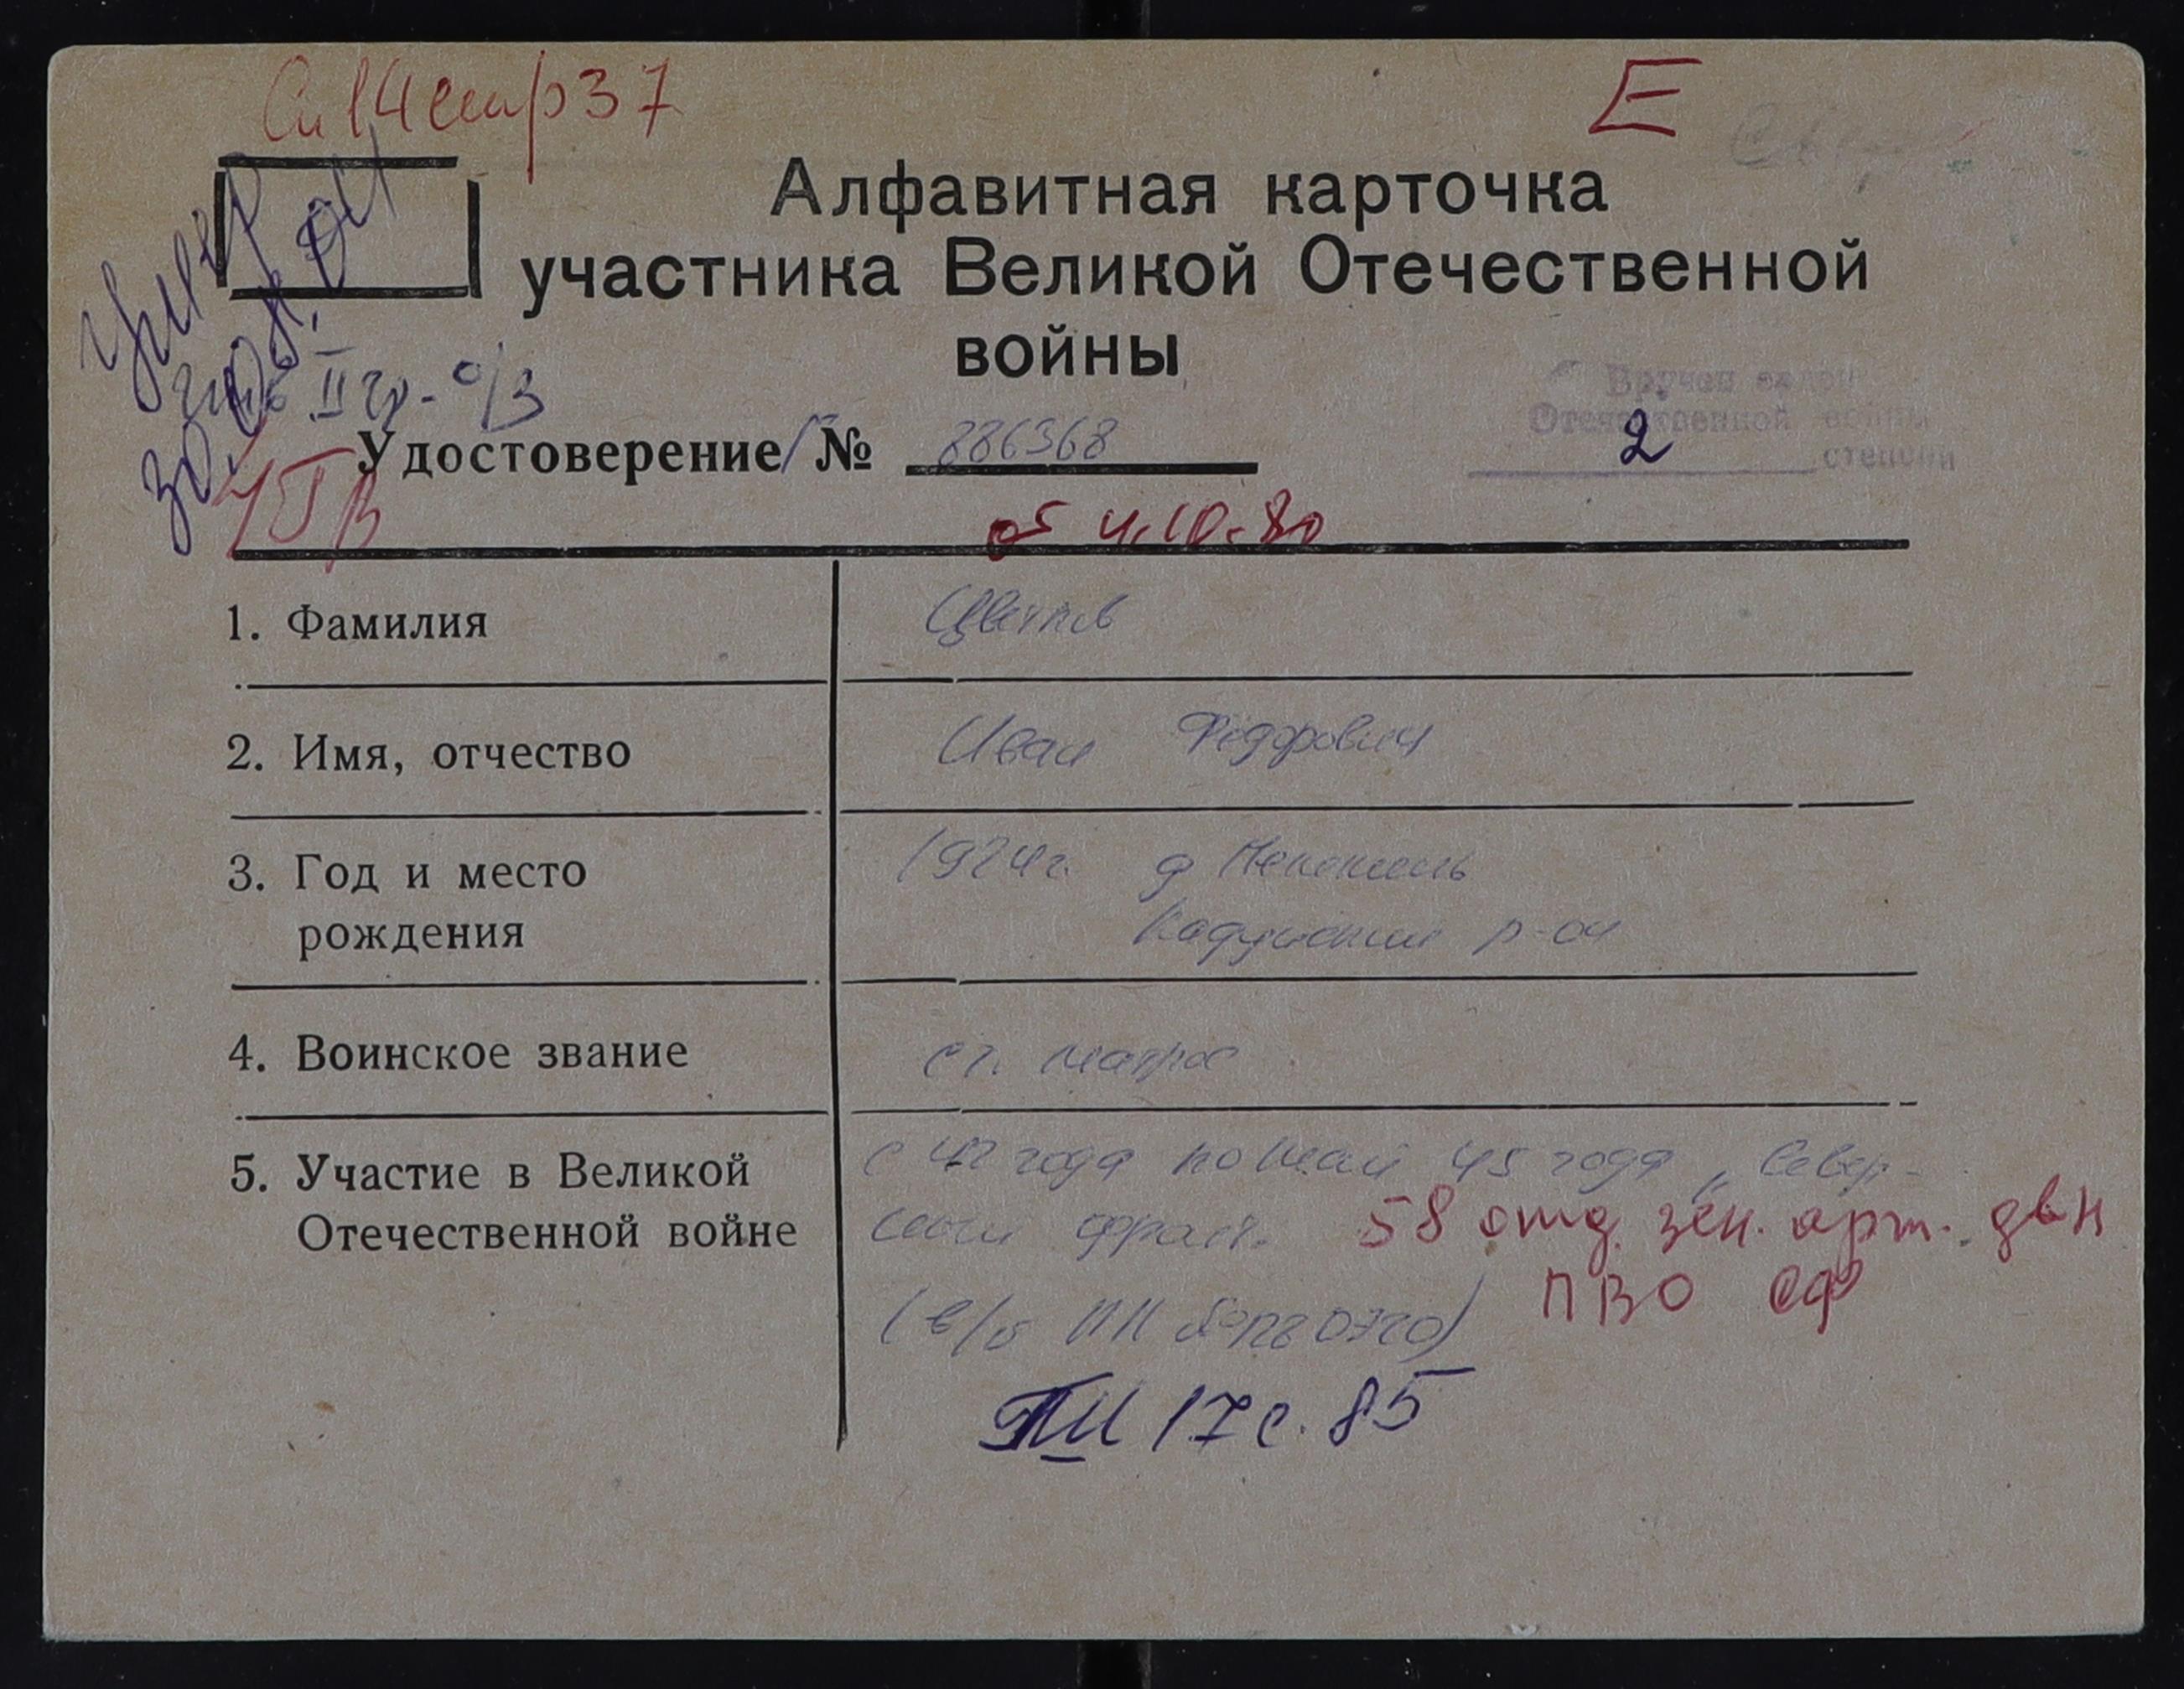 Сп 14 стр 37
Е
Алфавитная карточка
участника Великой Отечественной
войны
умер
II гр. о/з
Вручен орден
Отечественной войны
2 степени
Удостоверение № 886368
от 4.10.80
1. Фамилия Цветков
2. Имя, отчество Иван Федорович
3. Год и место 1924г. д
рождения Кадуйский р-он
4. Воинское звание ст. матрос
5. Участие в Великой с 42 года по май 45 года Север-
Отечественной войне 58 отд. зен. арт. двн
ПВО СФ
17 с. 85